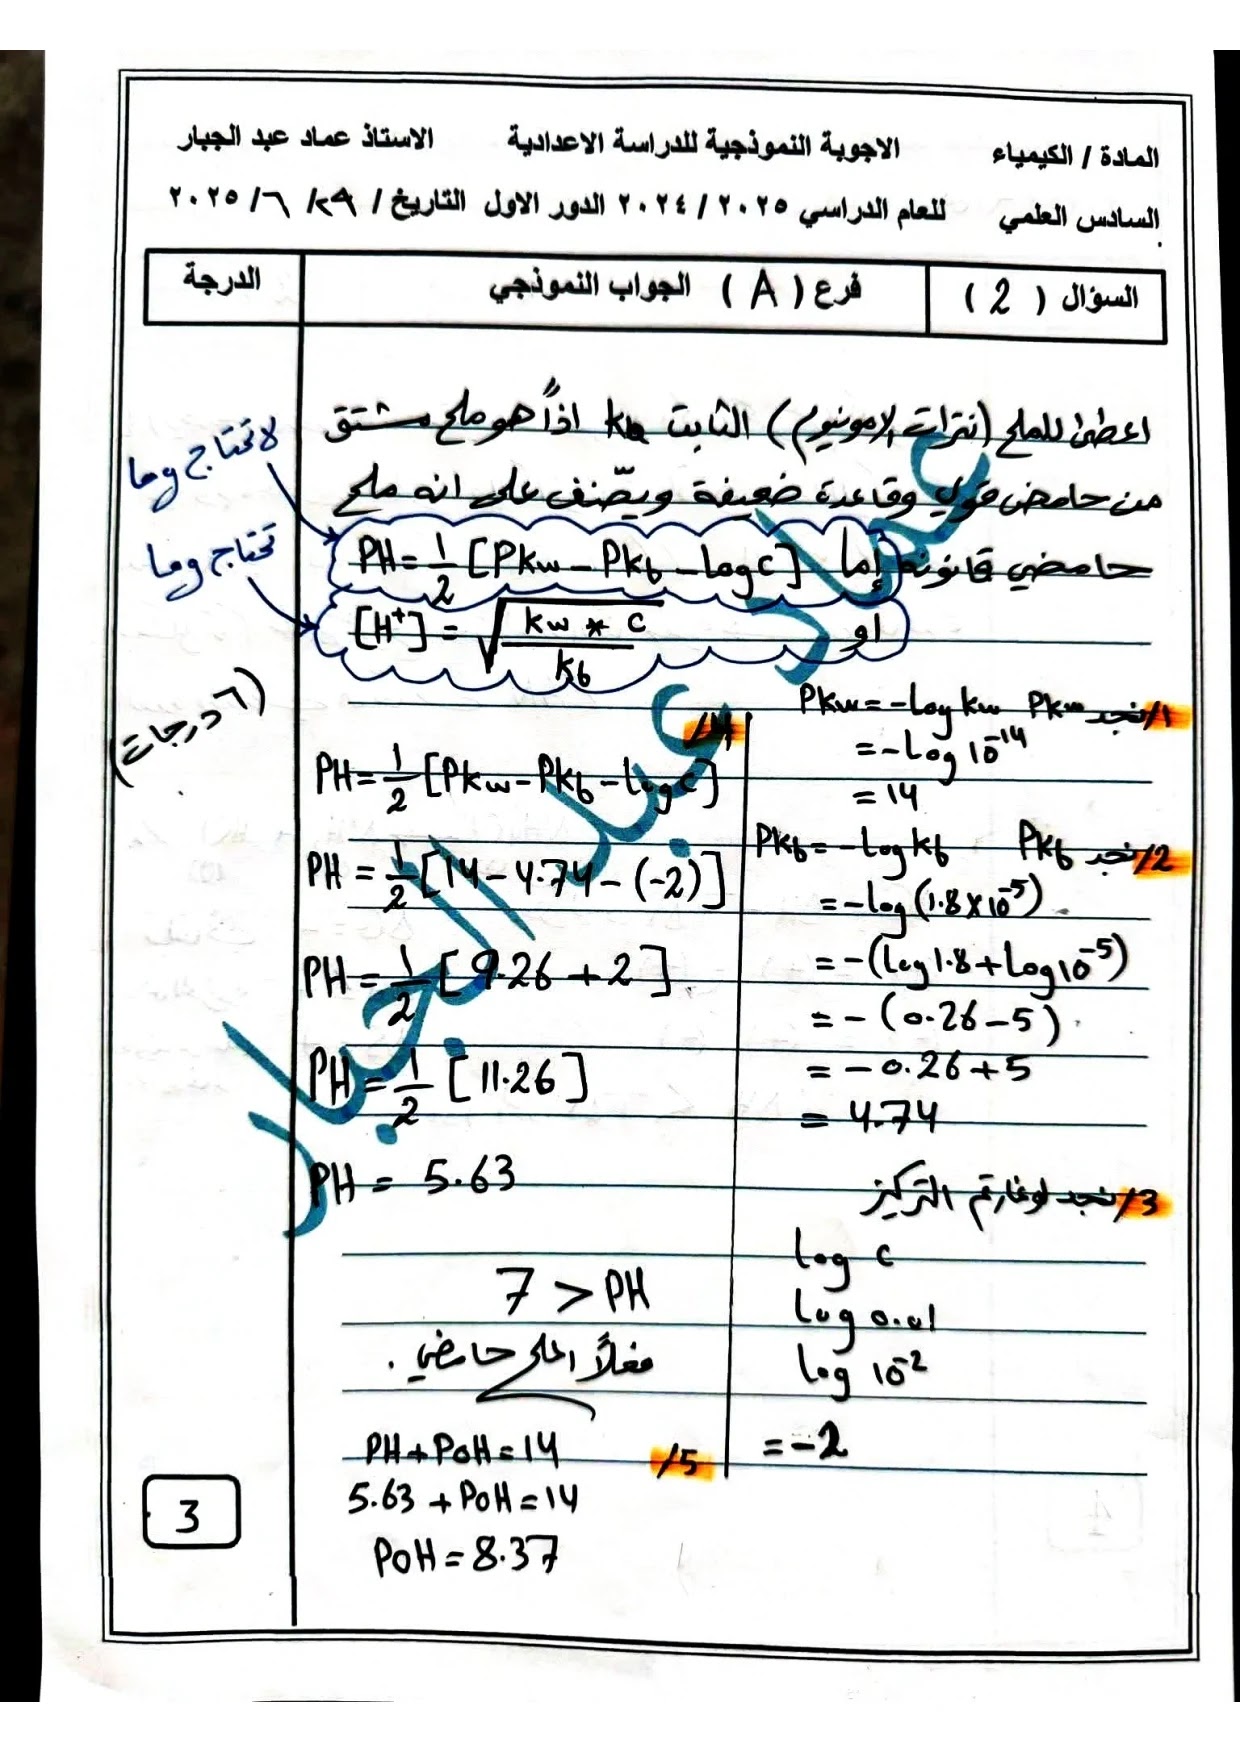 المادة / الكيمياء الاجوبة النموذجية للدراسة الاعدادية الاستاذ عماد عبد الجبار
السادس العلمي للعام الدراسي ٢٠٢٤/٢٠٢٥ الدور الاول التاريخ / ٢٩ / ٦ / ٢٠٢٥
السؤال ( 2 ) فرع ( A ) الجواب النموذجي الدرجة
اعطى للملح (نترات الامونيوم) الثابت kb اذاً هو ملح مشتق
من حامض قوي وقاعدة ضعيفة ويصّنف على انه ملح
حامضي قانونه إما PH = 1/2 [Pkw - Pkb - log c]
او [H⁺] = √(kw * c / kb)
لا تحتاج وما
تحتاج وما
(٦ درجات)
1/ نجد Pkw Pkw = -Log kw
= -Log 10⁻¹⁴
= 14
2/ نجد Pkb Pkb = -Log kb
= -Log (1.8 × 10⁻⁵)
= -(Log 1.8 + Log 10⁻⁵)
= -(0.26 - 5)
= -0.26 + 5
= 4.74
3/ نجد لوغارتم التركيز
log c
log 0.01
log 10⁻²
= -2
4/
PH = 1/2 [Pkw - Pkb - log c]
PH = 1/2 [14 - 4.74 - (-2)]
PH = 1/2 [9.26 + 2]
PH = 1/2 [11.26]
PH = 5.63
7 > PH
فعلاً الملح حامضي .
5/ PH + POH = 14
5.63 + POH = 14
POH = 8.37
3
عماد عبد الجبار